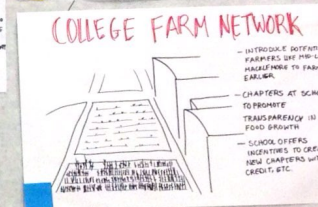 COLLEGE FARM NETWORK
- INTRODUCE
FARMERS LIKE
MACKLEMORE TO
EARLIER
- CHAPTERS AT
TO PROMOTE
TRANSPARENCY IN
FOOD GROWTH
- SCHOOL OFFERS
INCENTIVES TO
NEW CHAPTERS
CREDIT, ETC.